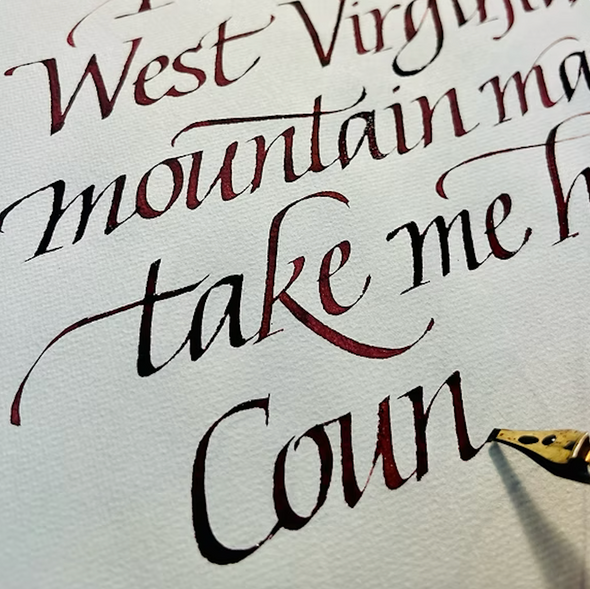 West Virginia
mountain ma
take me h
Coun